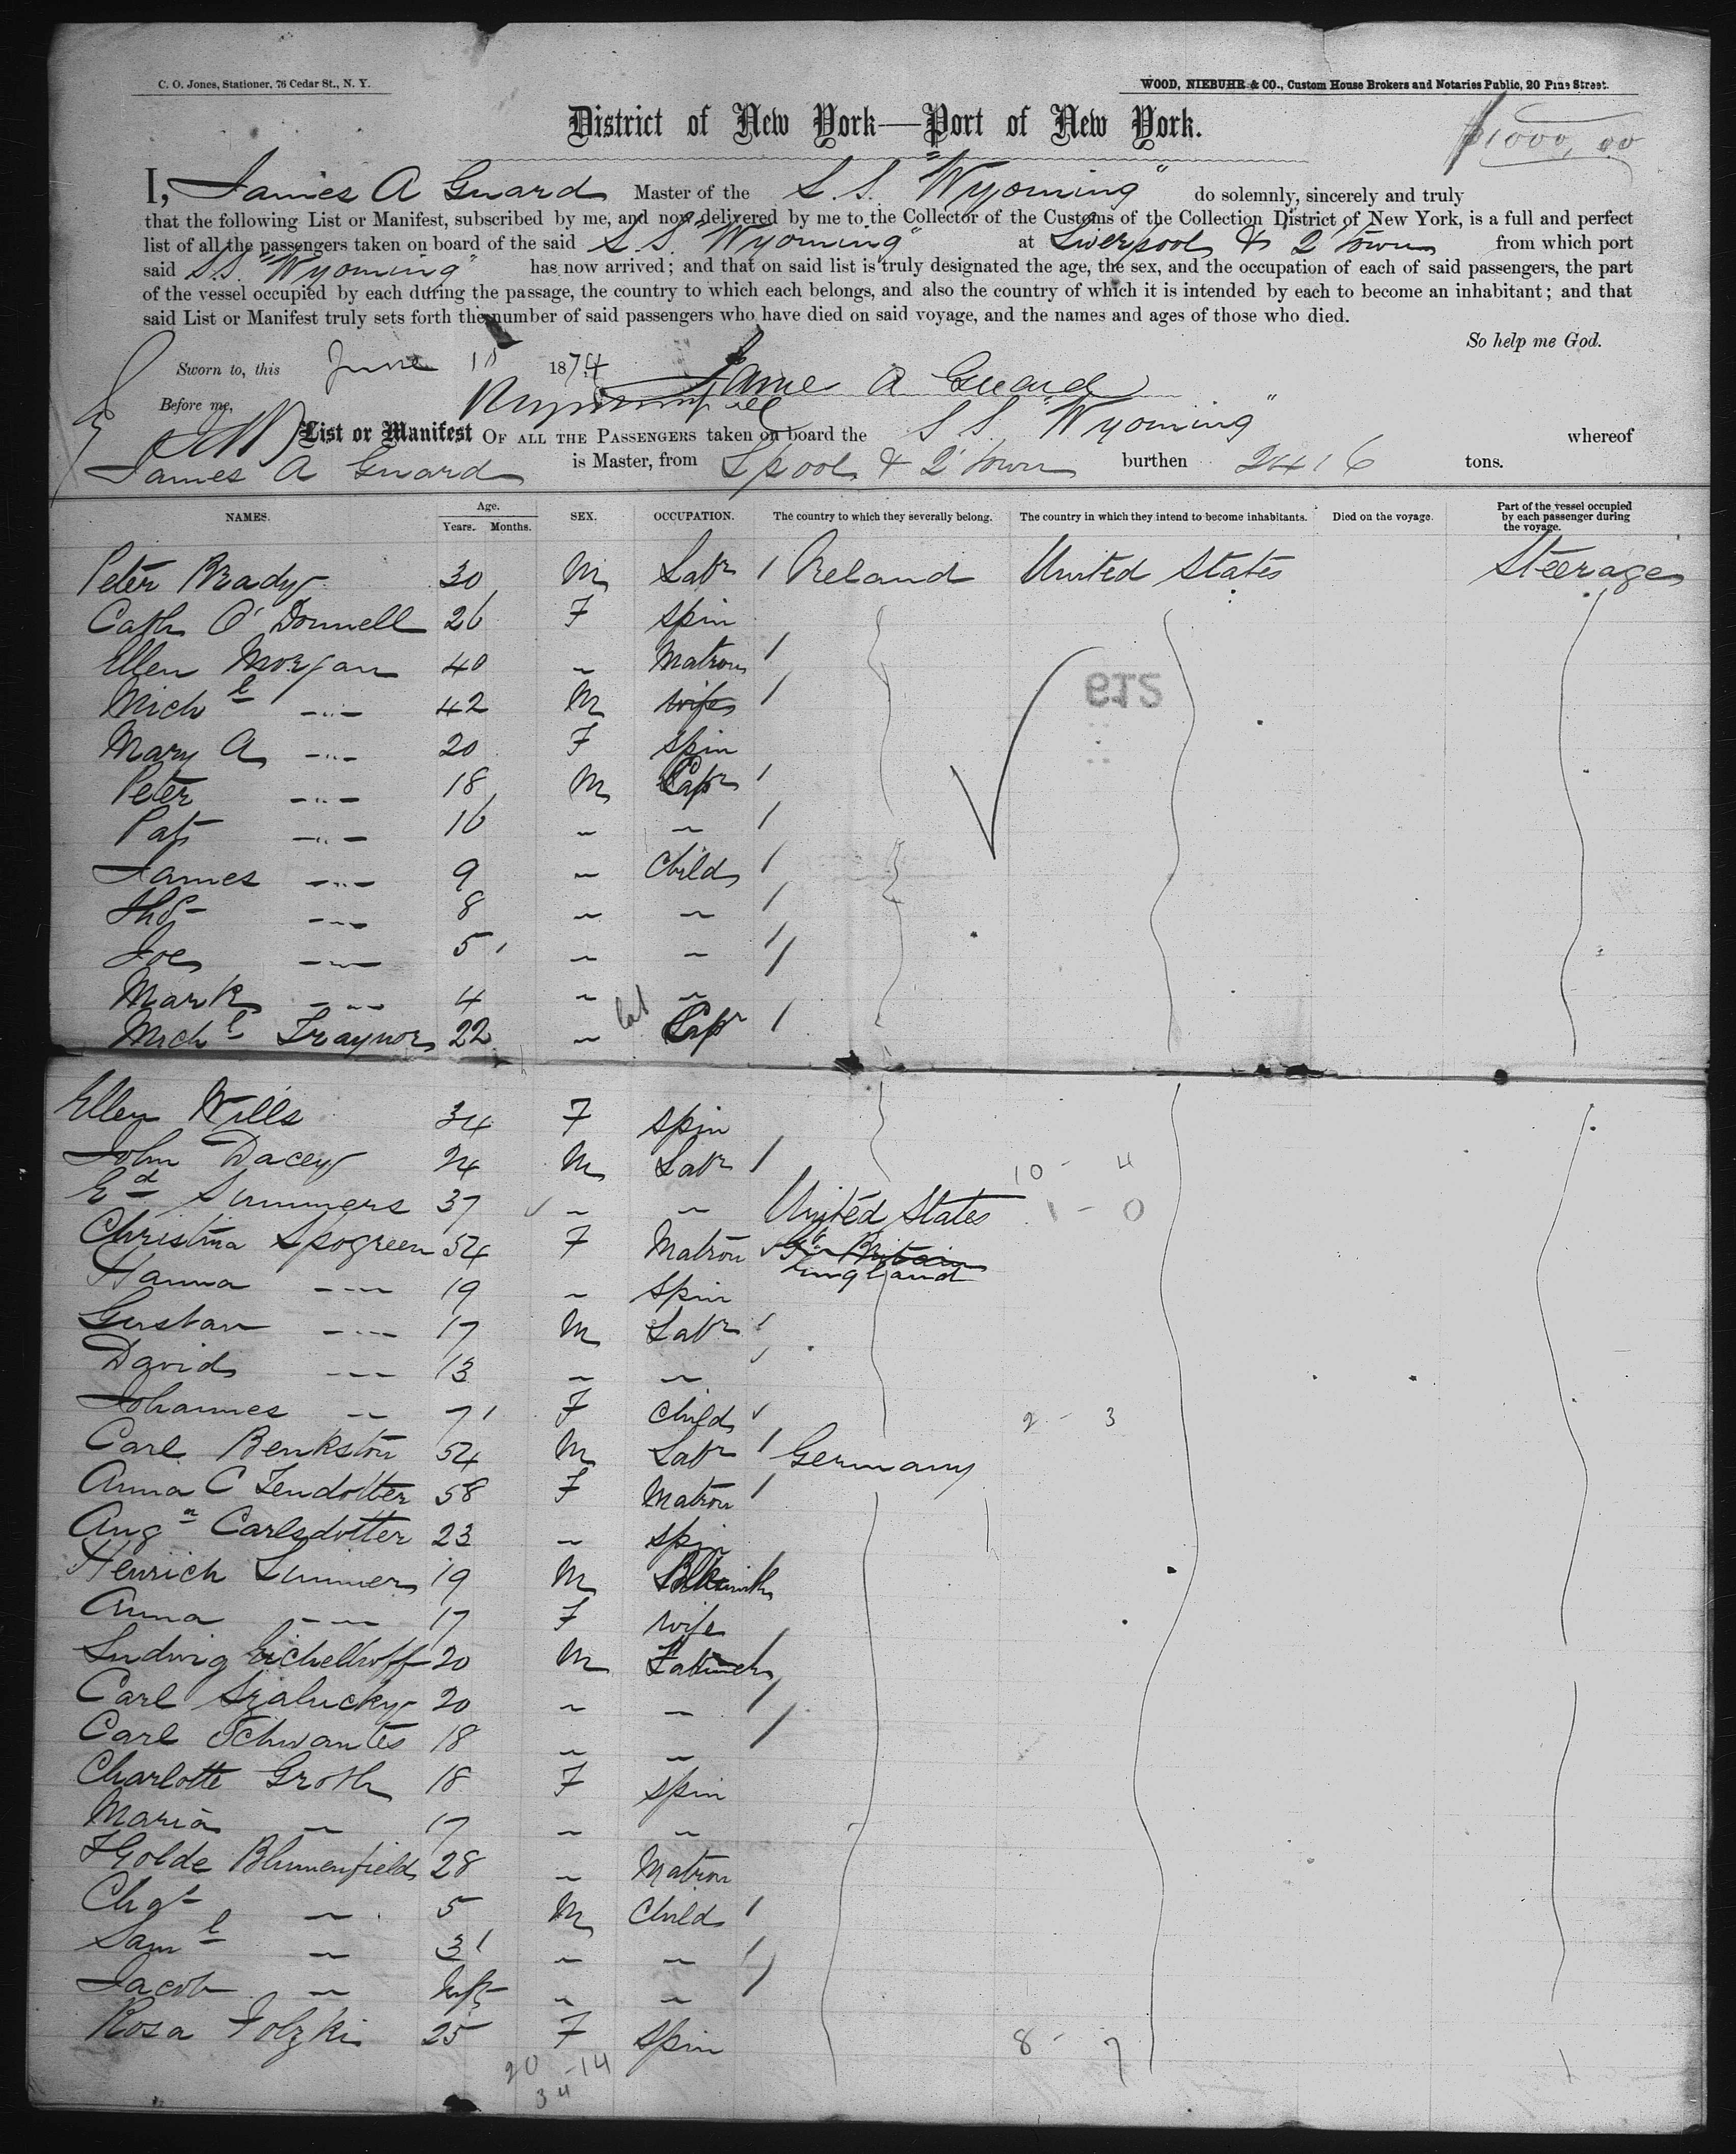 C. O. Jones, Stationer, 76 Cedar St., N. Y.
WOOD, NIEBUHR & CO., Custom House Brokers and Notaries Public, 20 Pine Street.
District of New York—Port of New York.
$1000,00
I, James A Guard Master of the S. S. "Wyoming" do solemnly, sincerely and truly
that the following List or Manifest, subscribed by me, and now delivered by me to the Collector of the Customs of the Collection District of New York, is a full and perfect
list of all the passengers taken on board of the said S. S. "Wyoming" at Liverpool & Q Town from which port
said S.S. "Wyoming" has now arrived; and that on said list is truly designated the age, the sex, and the occupation of each of said passengers, the part
of the vessel occupied by each during the passage, the country to which each belongs, and also the country of which it is intended by each to become an inhabitant; and that
said List or Manifest truly sets forth the number of said passengers who have died on said voyage, and the names and ages of those who died.
So help me God.
Sworn to, this June 1874 James A Guard
Before me,
List or Manifest OF ALL THE PASSENGERS taken on board the S S "Wyoming" whereof
James A Guard is Master, from Lpool & Q' Town burthen 2416 tons.
NAMES. Age. Years. Months. SEX. OCCUPATION. The country to which they severally belong. The country in which they intend to become inhabitants. Died on the voyage. Part of the vessel occupied by each passenger during the voyage.
Peter Brady 30 M Labr Ireland United States Steerage
Cath O'Donnell 26 F spin
Ellen Morgan 40 " Matron
Michl -"- 42 M wife
Mary A -"- 20 F spin
Peter -"- 18 M Labr
Pat -"- 16 " "
James -"- 9 " Child
Thos -"- 8 " "
Joe -"- 5 " "
Mark -"- 4 " "
Michl Traynor 22 " lab Labr
Ellen Wills 34 F spin
John Dacey 24 M Labr 10 - 4
Ed Summers 37 " " United States 1 - 0
Christina Spogreen 54 F Matron Gt Britain England
Hanna -"- 19 " spin
Gustav -"- 17 M Labr
David -"- 13 " "
Johannes " 7 F Child 2 - 3
Carl Benkston 54 M Labr Germany
Anna C Zendotter 58 F Matron
Auga Carlsdotter 23 " spin
Henrich Summer 19 M Blksmith
Anna -"- 17 F wife
Ludwig Eichelhoff 20 M
Carl Szalucky 20 " "
Carl Schwantes 18 " "
Charlotte Groth 18 F spin
Maria " 17 " "
Golde Blumenfield 28 " Matron
Chas " 5 M Child
Saml " 3 " "
Jacob " Inft " "
Rosa Folzki 25 F spin 8 - 7
20 - 14
34